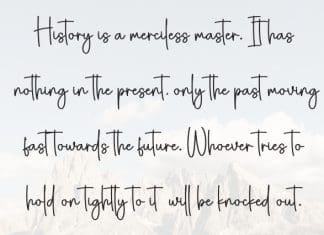 History is a merciless master. It has
nothing in the present. only the past moving
fast towards the future. Whoever tries to
hold on tightly to it will be knocked out.